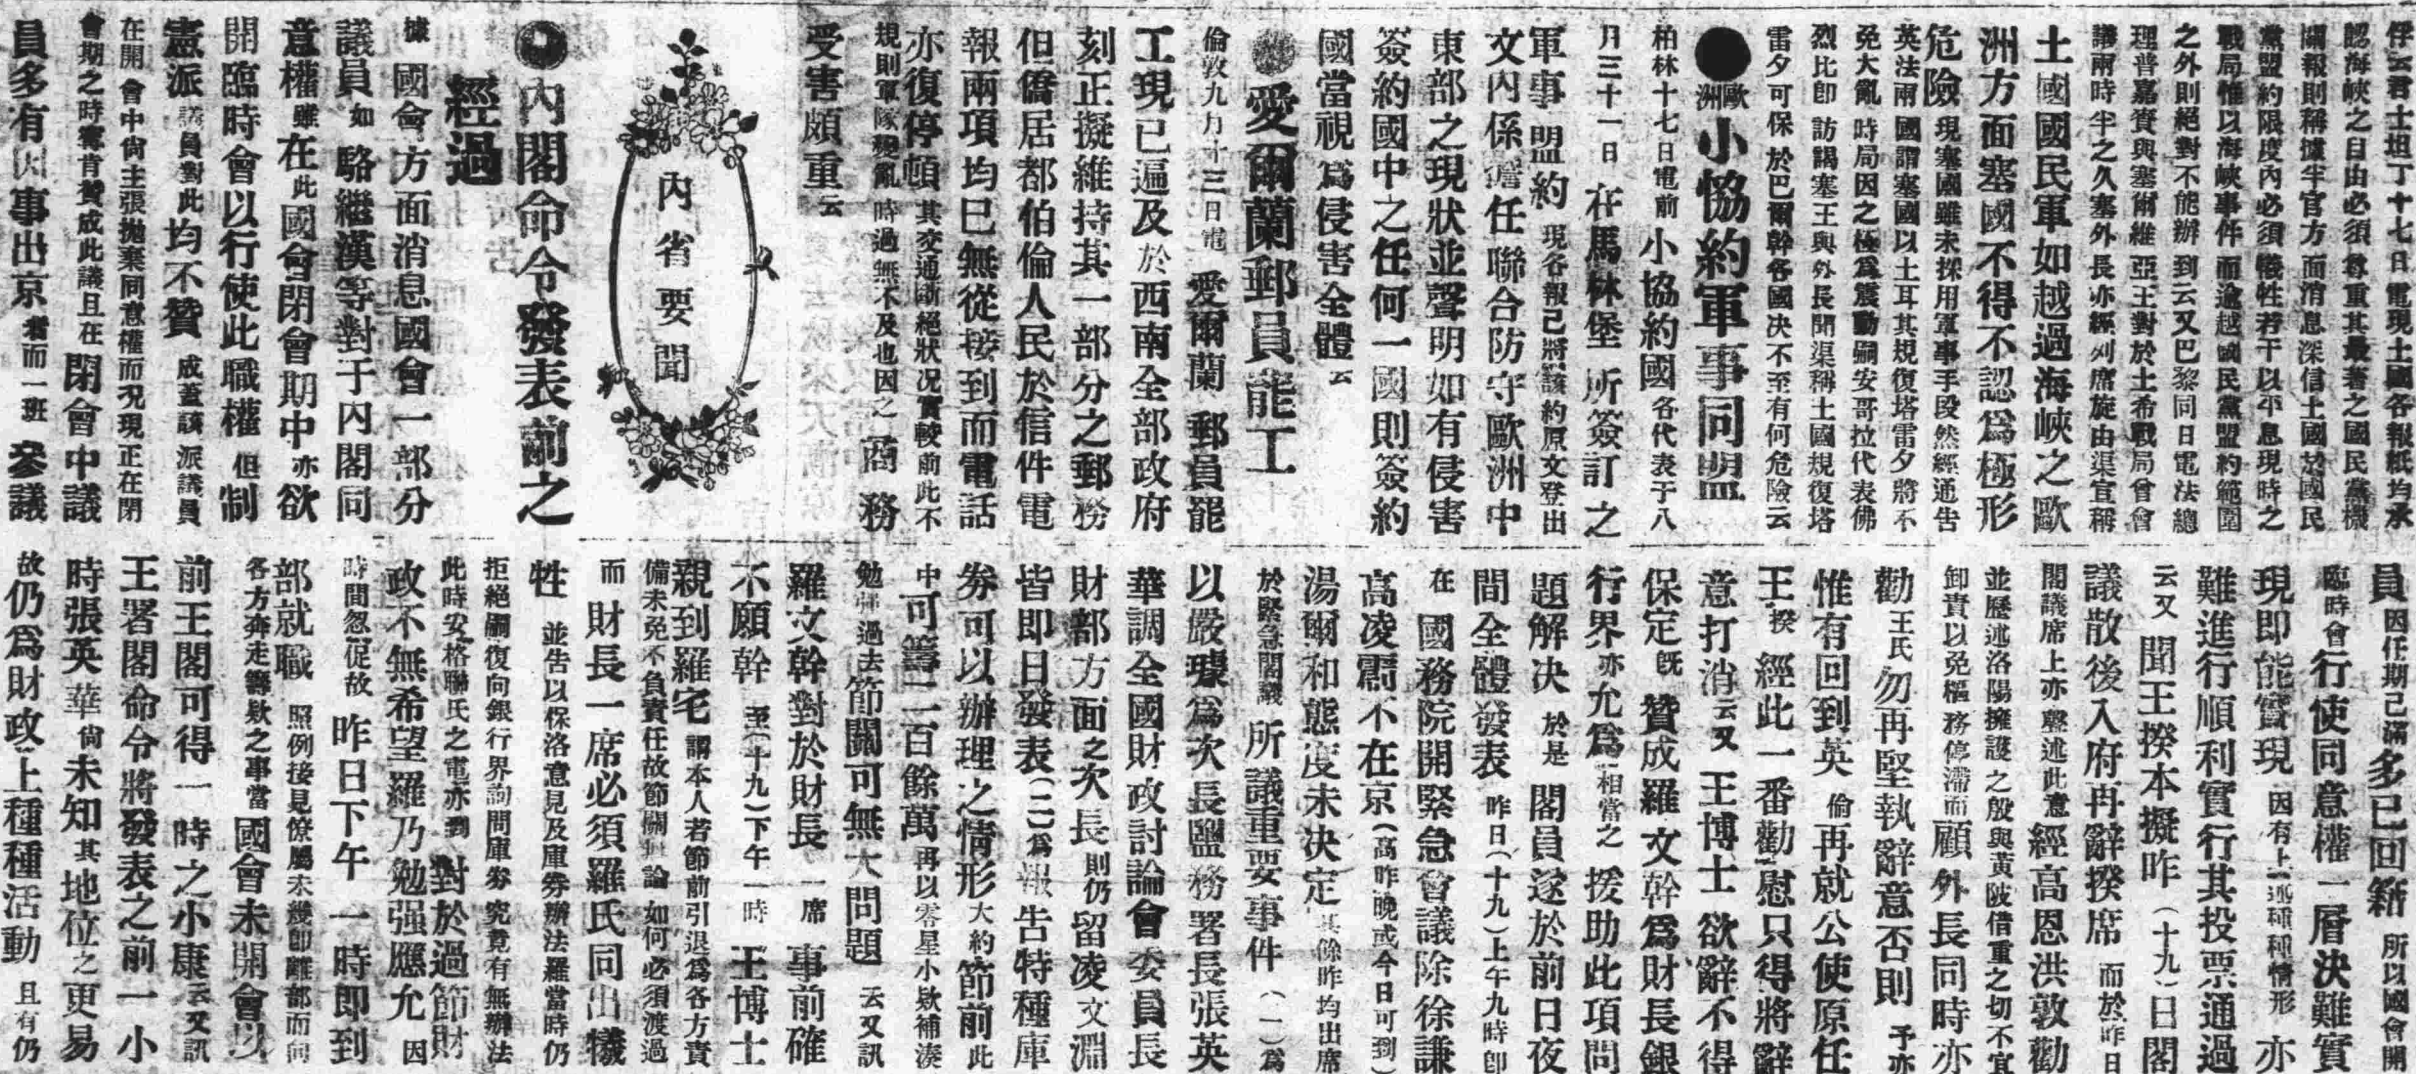 俘云君士坦丁十七日電現土國各報紙均承
認海峽之自由必須尊重其最著之國民黨機
關報則稱據半官方面消息深信土國於國民
黨盟約限度內必須犧牲若干以卒息現時之
戰局惟以海峽事件而逾越國民黨盟約範圍
之外則絕對不能辦到云又巴黎同日電法總
理普嘉賚與塞爾維亞王對於土希戰局曾會
議兩時半之久塞外長亦經列席旋由渠宣稱
土國國民軍如越過海峽之歐
洲方面塞國不得不認爲極形
危險現塞國雖未採用軍事手段然經通告
英法兩國謂塞國以土耳其規復塔雷夕將不
免大亂時局因之極爲震動嗣安哥拉代表佛
烈比卽訪謁塞王與外長聞渠稱土國規復塔
雷夕可保於巴爾幹各國決不至有何危險云
●歐洲小協約軍事同盟
柏林十七日電前小協約國各代表于八
月三十一日在馬林堡所簽訂之
軍事盟約現各報已將該約原文登出
文內係擔任聯合防守歐洲中
東部之現狀並聲明如有侵害
簽約國中之任何一國則簽約
國當視爲侵害全體云
愛爾蘭郵員罷工
倫敦九月十三日電愛爾蘭郵員罷
工現已遍及於西南全部政府
刻正擬維持其一部分之郵務
但僑居都伯倫人民於信件電
報兩項均已無從接到而電話
亦復停頓其交通斷絕狀況實較前此不
規則軍隊擾亂時過無不及也因之商務
受害頗重云
內省要聞
內閣命令發表前之
經過
據國會方面消息國會一部分
議員如駱繼漢等對于內閣同
意權雖在此國會閉會期中亦欲
開臨時會以行使此職權但制
憲派議員對此均不贊成蓋該派議員
在開會中尙主張拋棄同意權而況現正在閉
會期之時寗肯贊成此議且在閉會中議
員多有因事出京者而一班參議
員因任期已滿多已回籍所以國會開
臨時會行使同意權一層決難實
現即能實現因有上述種種情形亦
難進行順利實行其投票通過
云又聞王揆本擬昨(十九)日閣
議散後入府再辭揆席而於昨日
閣議席上亦鄭述此意經高恩洪敦勸
並歷述洛陽擁護之殷與黃陂借重之切不宜
卸責以免樞務停滯而顧外長同時亦
勸王氏勿再堅執辭意否則予亦
惟有回到英倫再就公使原任
王揆經此一番勸慰只得將辭
意打消云又王博士欲辭不得
保定旣贊成羅文幹爲財長銀
行界亦允爲相當之援助此項問
題解決於是閣員遂於前日夜
間全體發表昨日(十九)上午九時卽
在國務院開緊急會議除徐謙
高凌霨不在京(高昨晚或今日可到)
湯爾和態度未決定其餘昨均出席
於緊急閣議所議重要事件(一)爲
以嚴璩爲次長鹽務署長張英
華調全國財政討論會委員長
財部方面之次長則仍留凌文淵
皆即日發表(二)爲報告特種庫
劵可以辦理之情形大約節前此
中可籌二百餘萬再以零星小欵補湊
勉強過去節關可無大問題云又訊
羅文幹對於財長一席事前確
不願幹至(十九)下午一時王博士
親到羅宅謂本人若節前引退爲各方責
備未免不負責任故節關無論如何必須渡過
而財長一席必須羅氏同出犧
牲並告以保洛意見及庫劵辦法羅當時仍
拒絕嗣復向銀行界詢問庫劵究竟有無辦法
此時安格聯氏之電亦到對於過節財
政不無希望羅乃勉强應允因
時間忽促故昨日下午一時即到
部就職照例接見僚屬未幾卽離部而向
各方奔走籌欵之事當國會未開會以
前王閣可得一時之小康云又訊
王署閣命令將發表之前一小
時張英華尙未知其地位之更易
故仍爲財政上種種活動且有仍